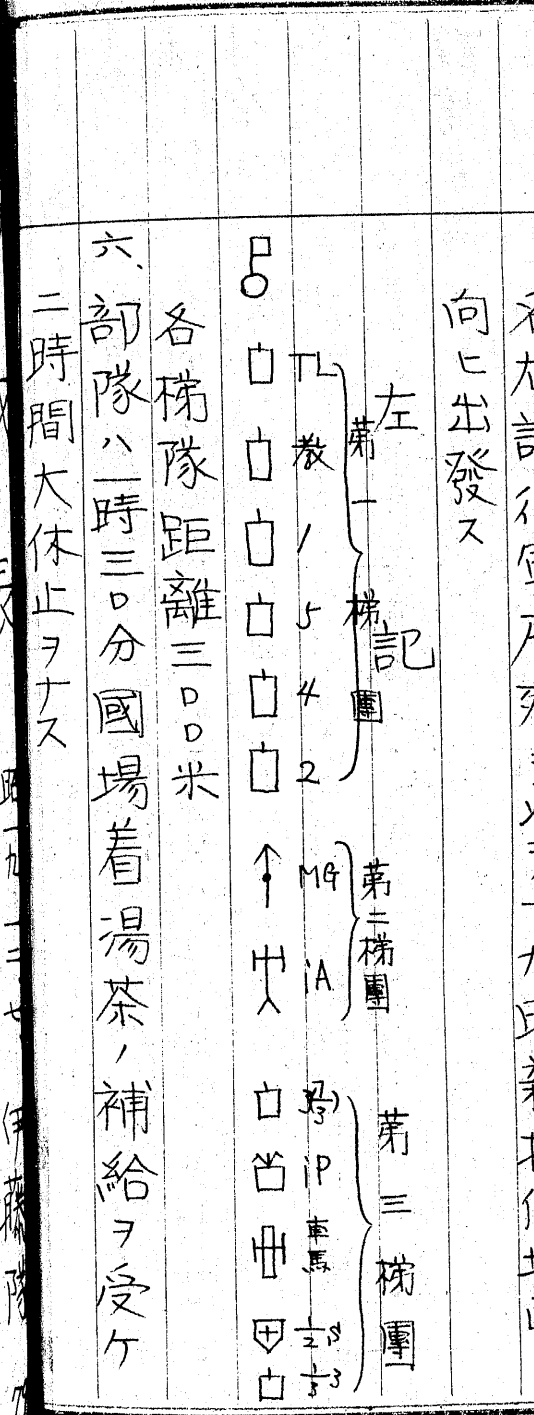 向ヒ出發ス
左記
第一梯團
TL 教 1 5 4 2
第二梯團
MG iA
第三梯團
iP 車馬 1/2 1/3 3
各梯隊距離三〇〇米
六、部隊ハ一時三〇分國場着湯茶ノ補給ヲ受ケ
二時間大休止ヲナス
伊藤隊